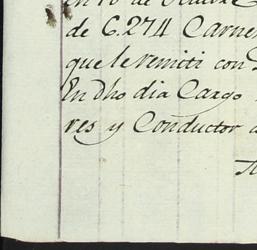 en 10 de
de 6.274 Carne
que le remiti con
En dho dia Cargo
res y Conductor a